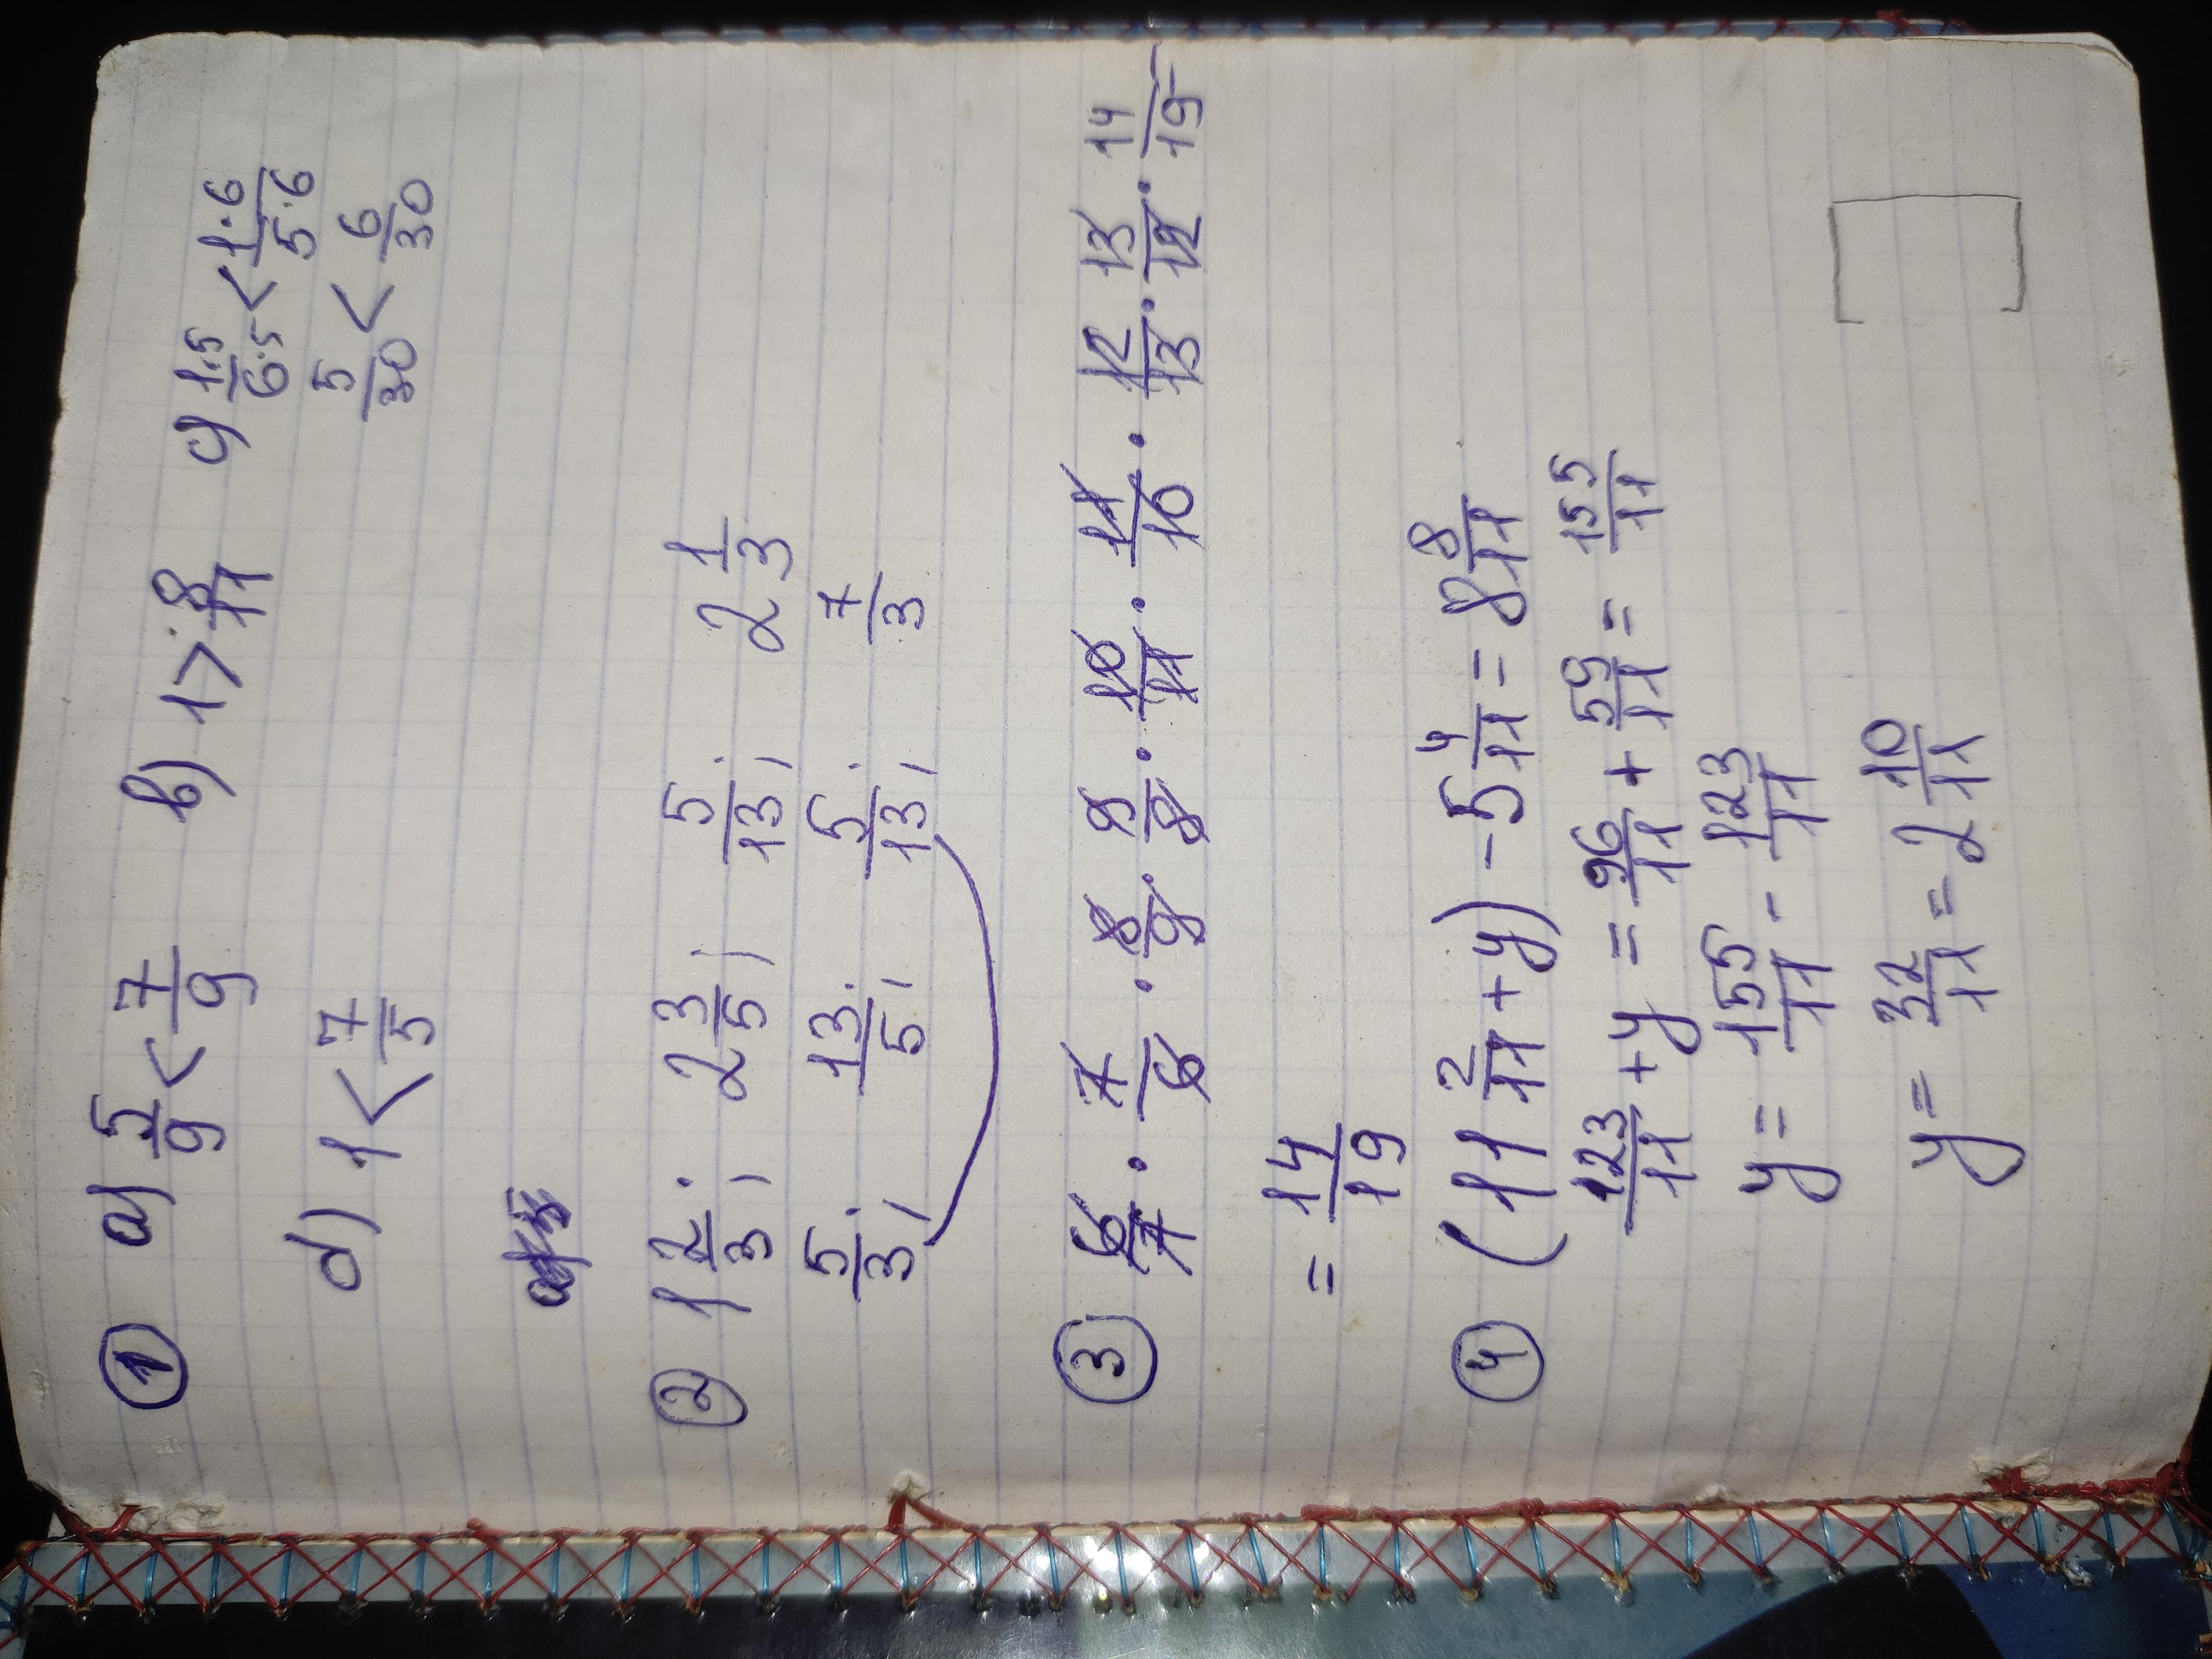 ① a) 5/9 < 7/9 b) 1 > 8/11 c) 1·5/6·5 < 1·6/5·6
5/30 < 6/30
d) 1 < 7/5
② 1 2/3; 2 3/5; 5/13; 2 1/3
5/3; 13/5; 5/13; 7/3
③ 6/7 · 7/6 · 8/9 · 9/8 · 10/11 · 11/10 · 12/13 · 13/12 · 14/19 =
= 14/19
④ (11 2/11 + y) - 5 4/11 = 8 8/11
123/11 + y = 96/11 + 59/11 = 155/11
y = 155/11 - 123/11
y = 32/11 = 2 10/11